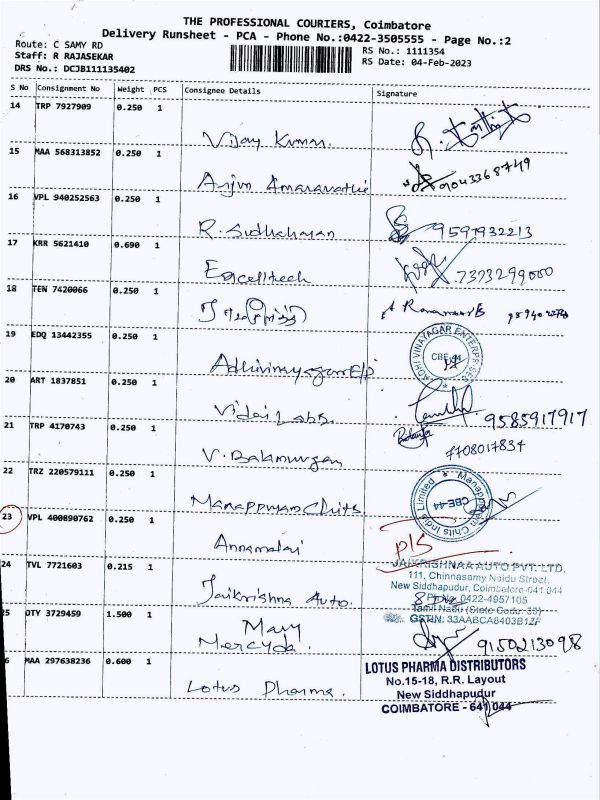 THE PROFESSIONAL COURIERS, Coimbatore
Delivery Runsheet - PCA - Phone No.:0422-3505555 - Page No.:2
Route: C SAMY RD
RS No.: 1111354
Staff: R RAJASEKAR
RS Date: 04-Feb-2023
DRS No.: DCJB111135402
S No Consignment No Weight PCS Consignee Details Signature
14 TRP 7927909 0.250 1
Vijay Kumar.
15 MAA 568313852 0.250 1
Arjun Amaravathie 9043368749
16 VPL 940252563 0.250 1
R. Sudhaharan 9597932213
17 KRR 5621410 0.690 1
Excelltech 7373299000
18 TEN 7420066 0.250 1
19 EDQ 13442355 0.250 1
ADHI VINAYAGAR ENTERPRISES
CBE-44
Adhivinayagar E/P
20 ART 1837851 0.250 1
Vidai Labs. 9585917917
21 TRP 4170743 0.250 1
7708017834
V. Balamurgan
22 TRZ 220579111 0.250 1
Manappuram Chits India Limited
CBE-44
Manappuram Chits
23 VPL 400890762 0.250 1
Annamalai P/S
24 TVL 7721603 0.215 1
JAIKRISHNAA AUTO PVT. LTD.
111, Chinnasamy Naidu Street,
New Siddhapudur, Coimbatore-641 044
Jaikrishna Auto. 0422-4957105
Tamil Nadu (State Code: 33)
GSTIN: 33AABCA8403B1ZF
OTY 3729459 1.500 1
Mary
Mercyda. 9150213098
MAA 297638236 0.600 1
LOTUS PHARMA DISTRIBUTORS
No.15-18, R.R. Layout
New Siddhapudur
Lotus Pharma.
COIMBATORE - 641 044